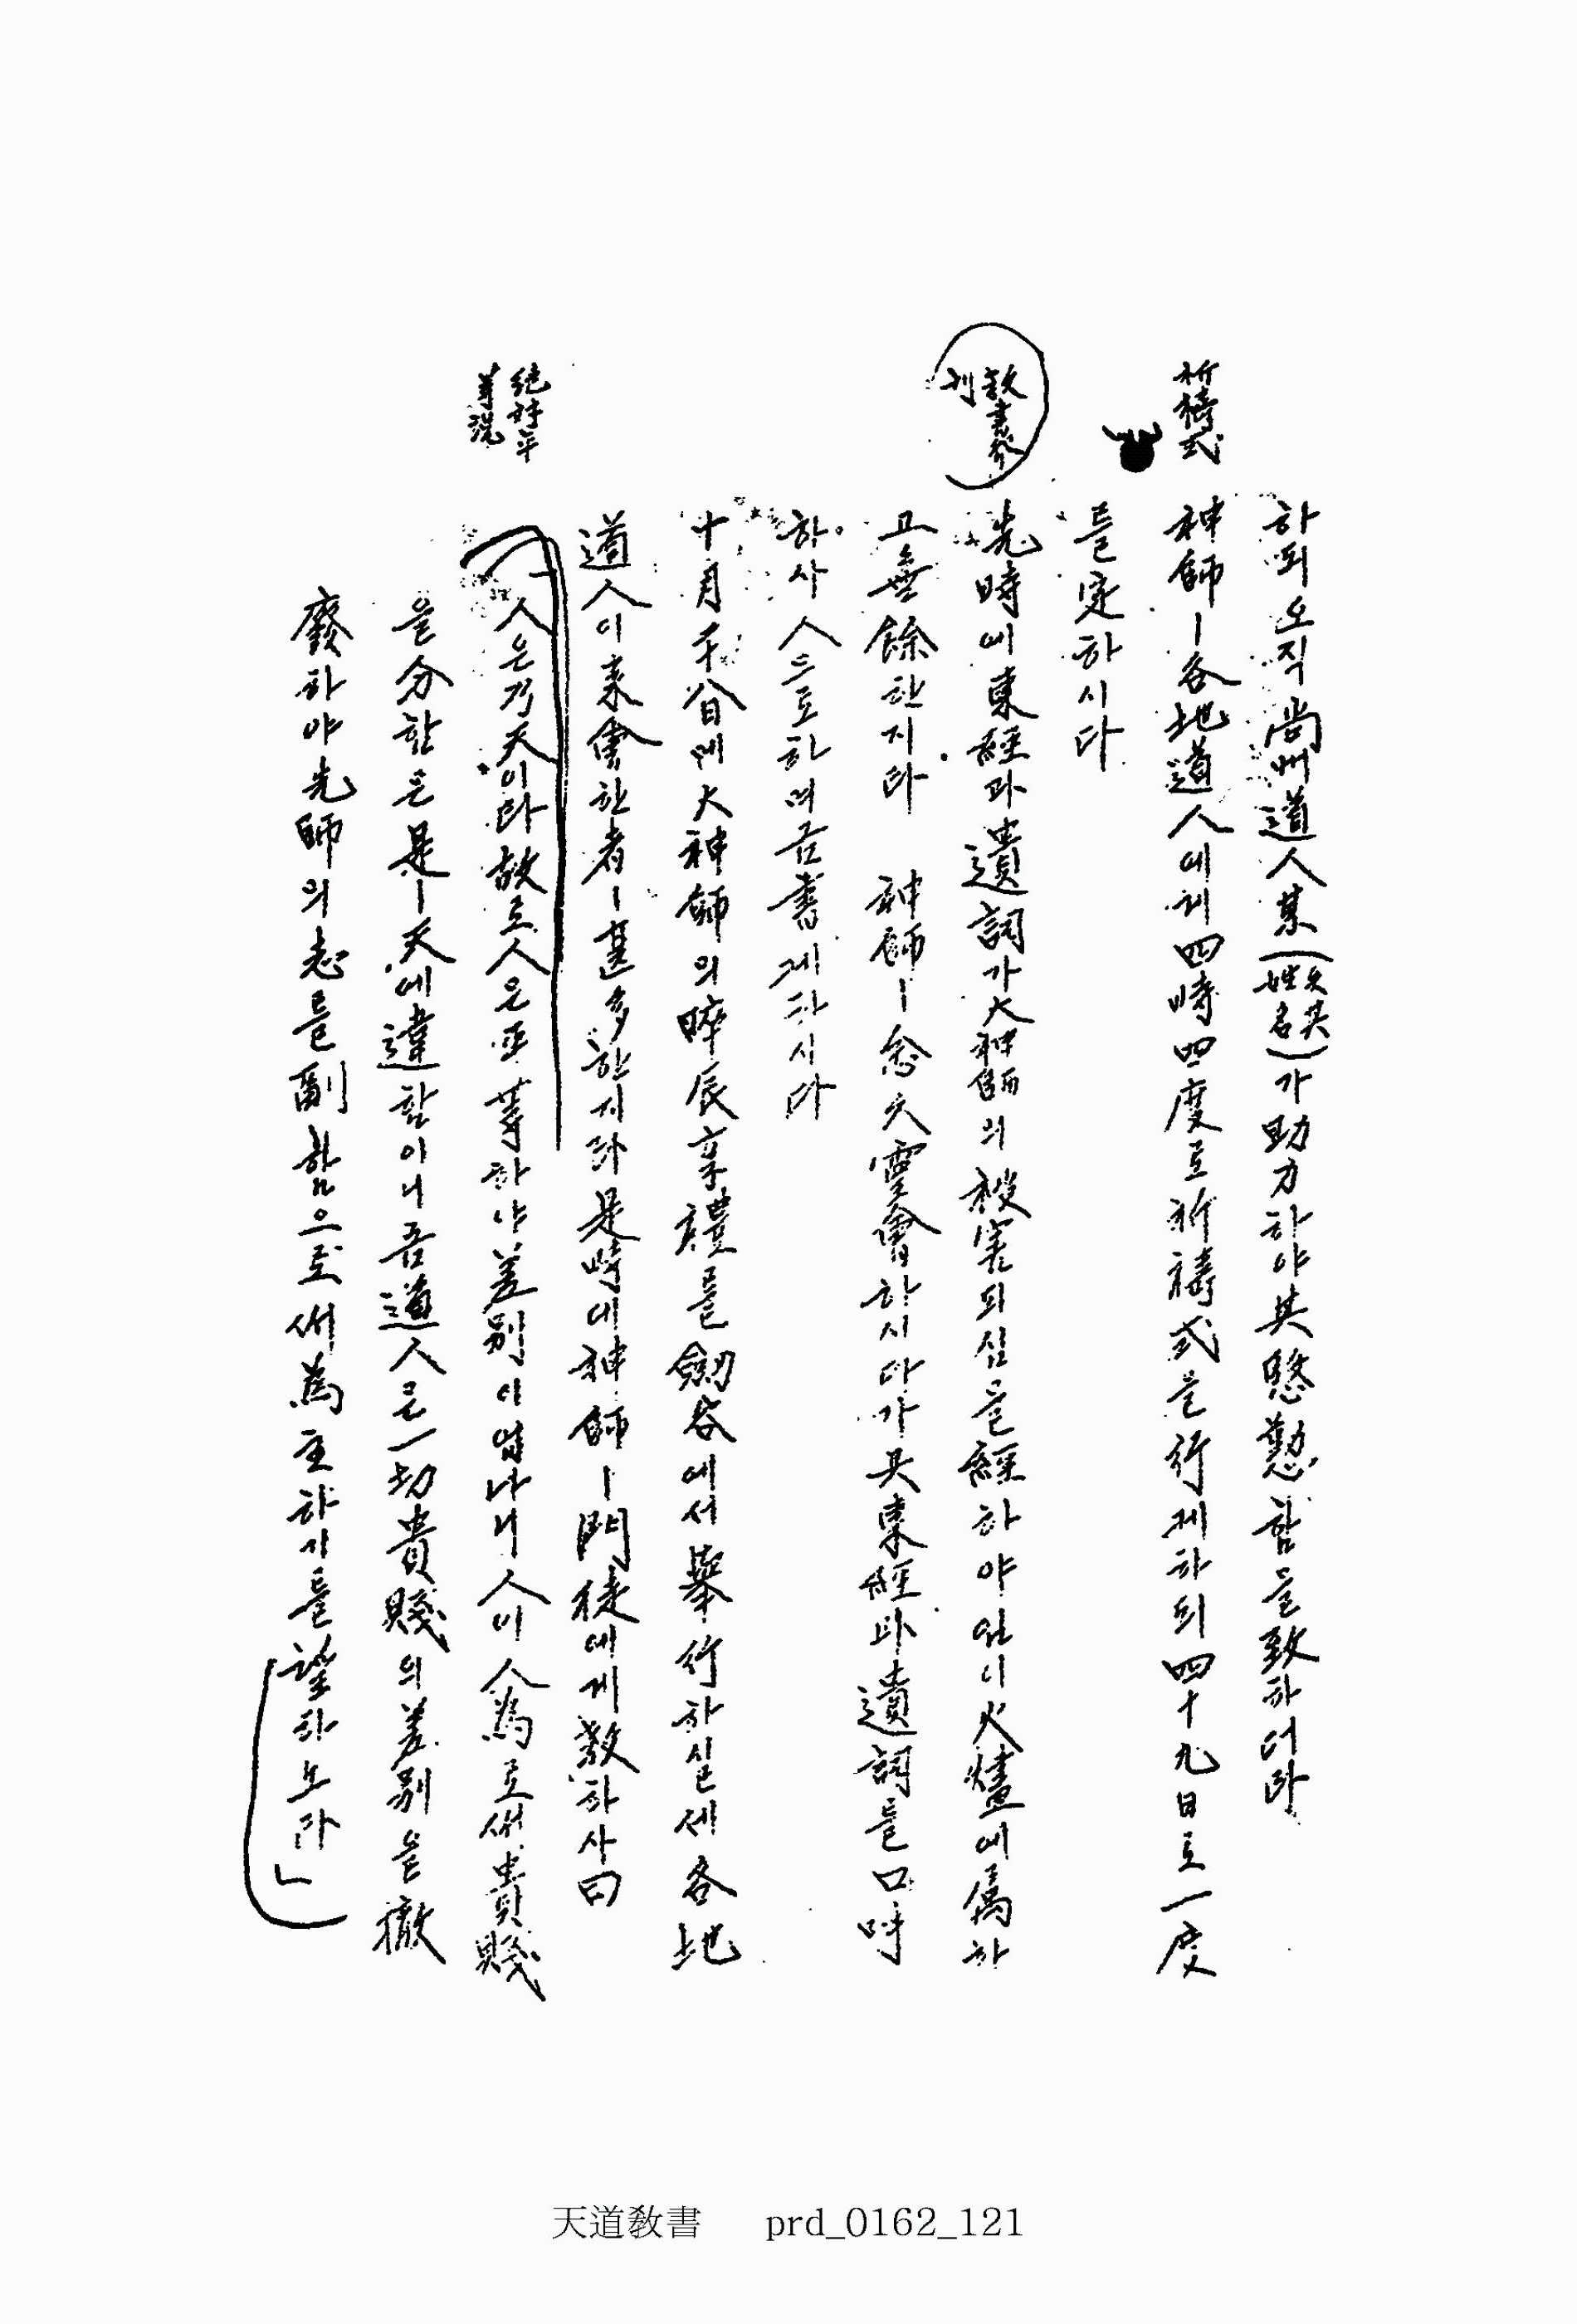 하되오직尙州道人某(姓名失其)가助力하야其慇懃함을致하더라
祈禱式
神師ㅣ各地道人에게四時四度로祈禱式을行케하되四十九日로一度
를定하시다
敎書
刊
先時에東經과遺詞가大神師의被害되심을經하야임이火燼에屬하
고無餘한지라 神師ㅣ念久靈會하시다가其東經과遺詞를口呼
하사人으로하여금書케하시다
十月二十八日에大神師의晬辰享禮를劒谷에서擧行하실세各地
道人이來會한者ㅣ甚多한지라是時에神師ㅣ門徒에게敎하사曰
絶對平
等說
「人은乃天이라故로人은平等하야差別이업나니人이人爲로써貴賤
을分함은是ㅣ天에違함이니吾道人은一切貴賤의差別을撤
廢하야先師의志를副함으로써爲主하기를望하노라」
天道敎書 prd_0162_121